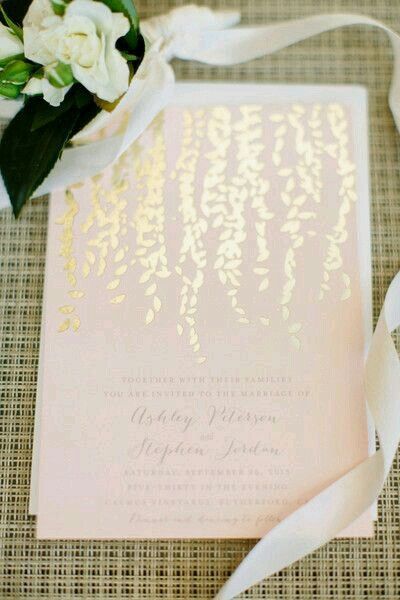 TOGETHER WITH THEIR FAMILIES
YOU ARE INVITED TO THE MARRIAGE OF
Ashley Peterson
and
Stephen Jordan
SATURDAY, SEPTEMBER 2015
FIVE-THIRTY IN THE EVENING
VINEYARDS, RUTHERFORD, CA
Dinner and dancing to follow